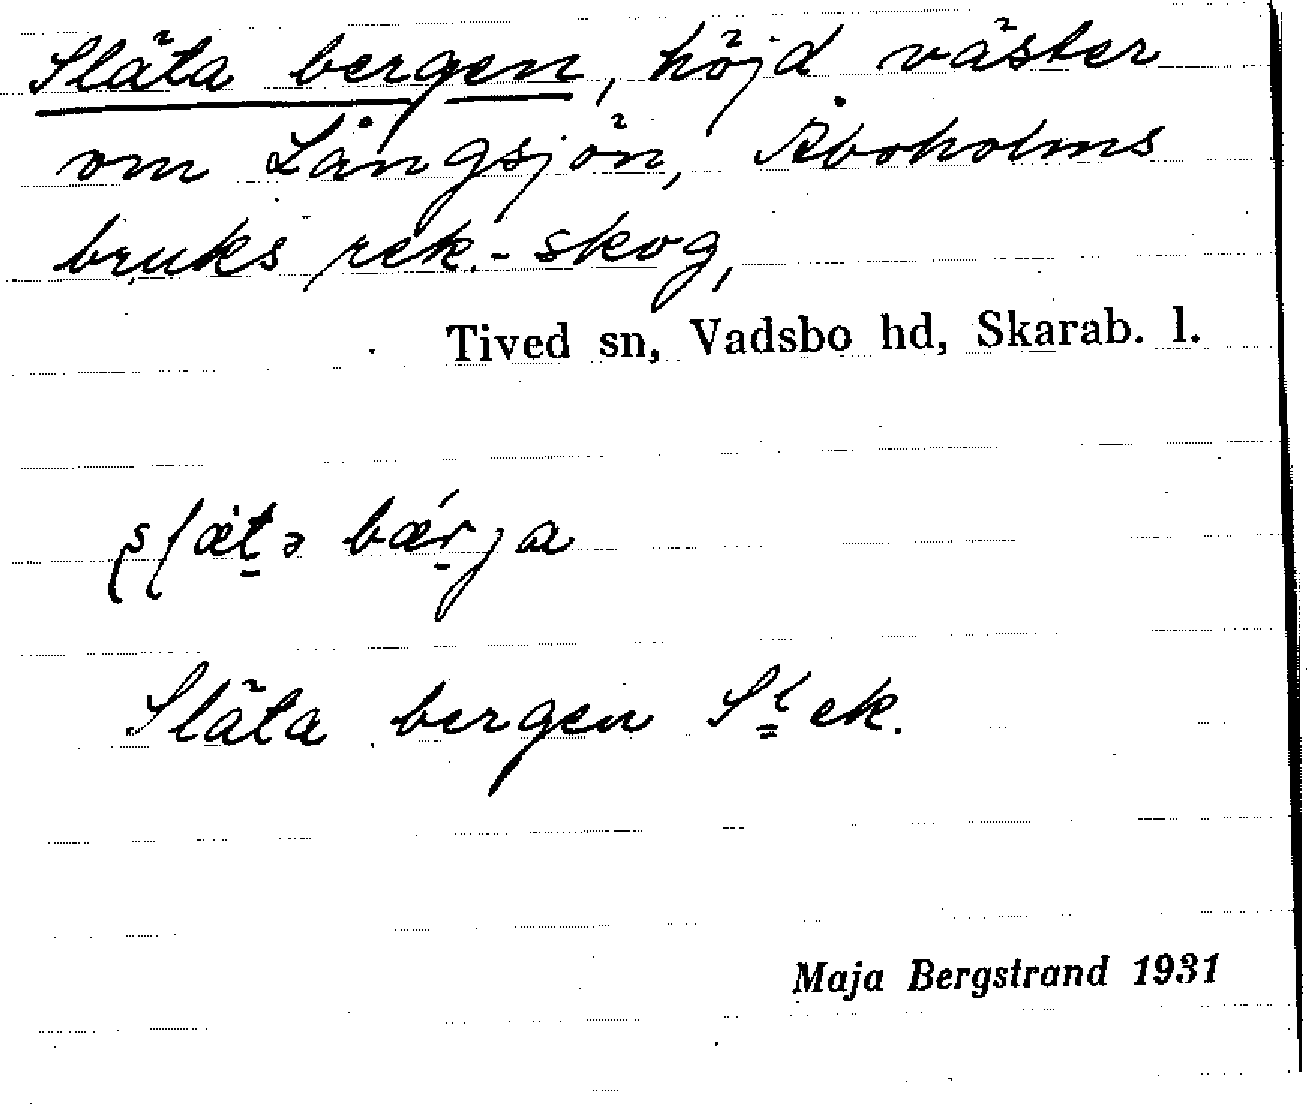 Släta bergen, höjd väster
om Långsjön, Åboholms
bruks rek.-skog,
Tived sn, Vadsbo hd, Skarab. l.
bærja
Släta bergen St ek.
Maja Bergstrand 1931